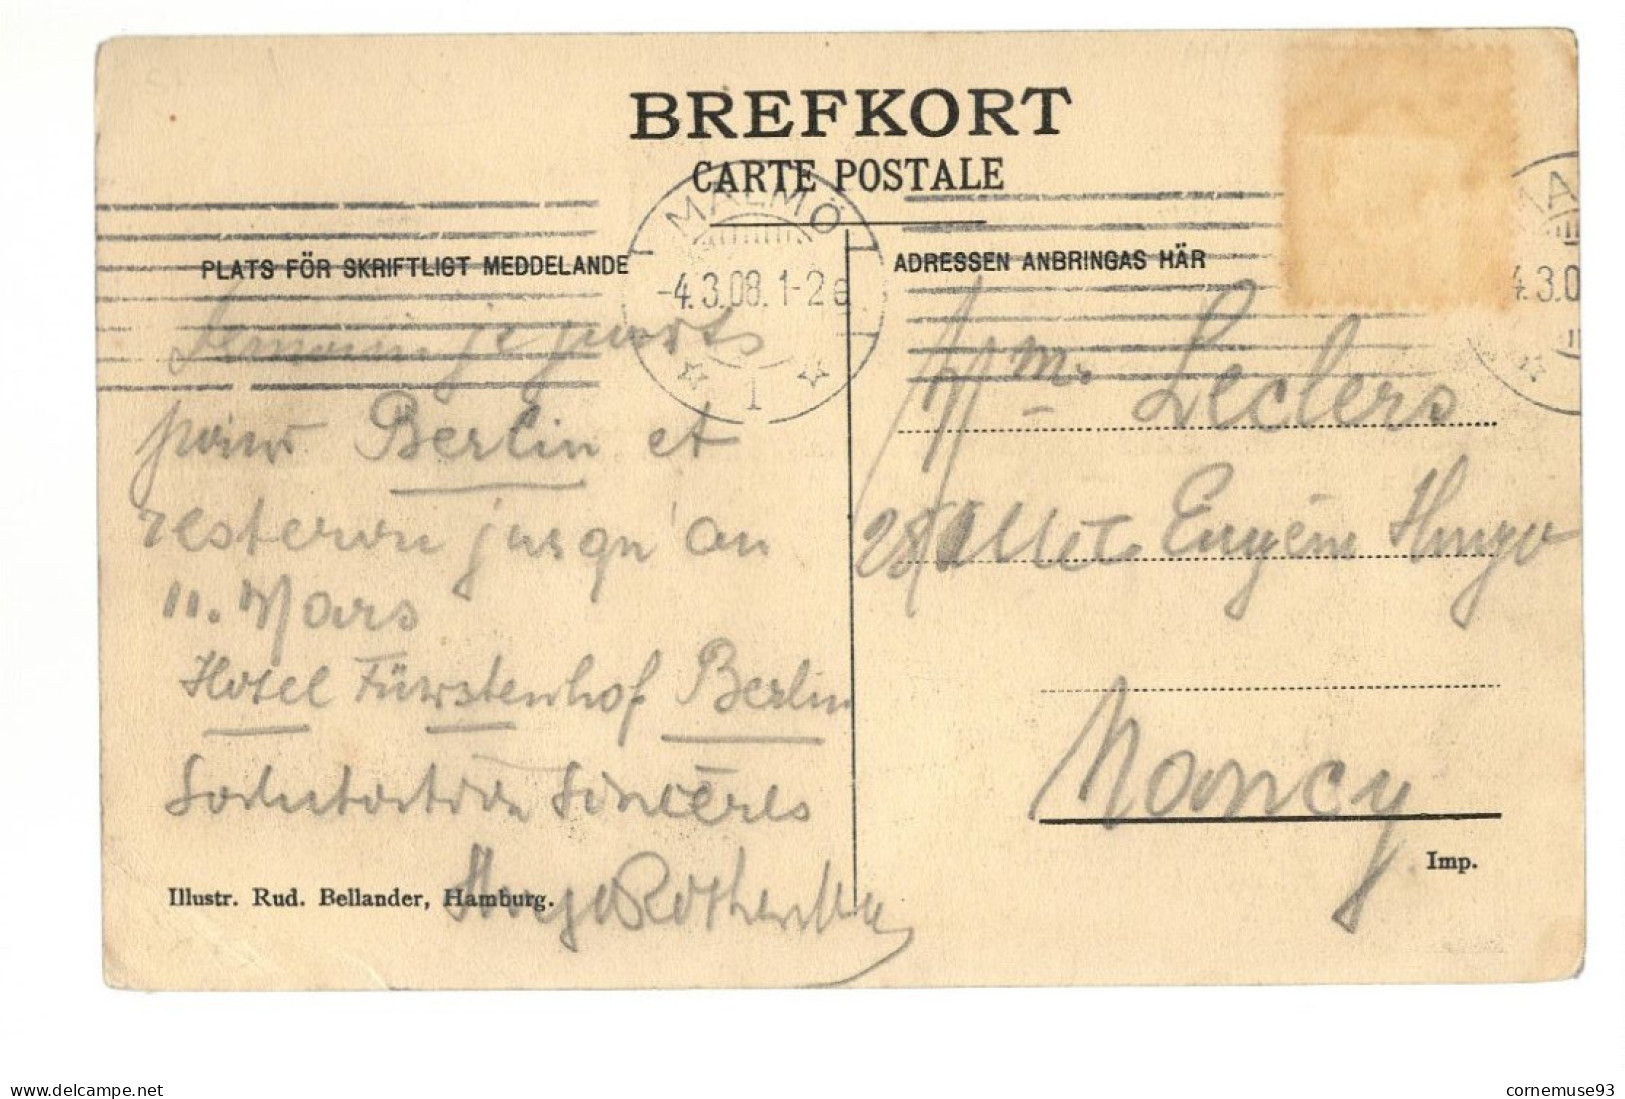 BREFKORT
CARTE POSTALE
MALMÖ
-4.3.08.1-2e
1
PLATS FÖR SKRIFTLIGT MEDDELANDE
Demain je parts
pour Berlin et
resterai jusqu'au
11. Mars
Hotel Fürstenhof Berlin
Salutation Sincères
Hugo
Illustr. Rud. Bellander, Hamburg.
ADRESSEN ANBRINGAS HÄR
4.3.0
Mm. Leclers
28 Eugène Hugo
Nancy
Imp.
www.delcampe.net
cornemuse93